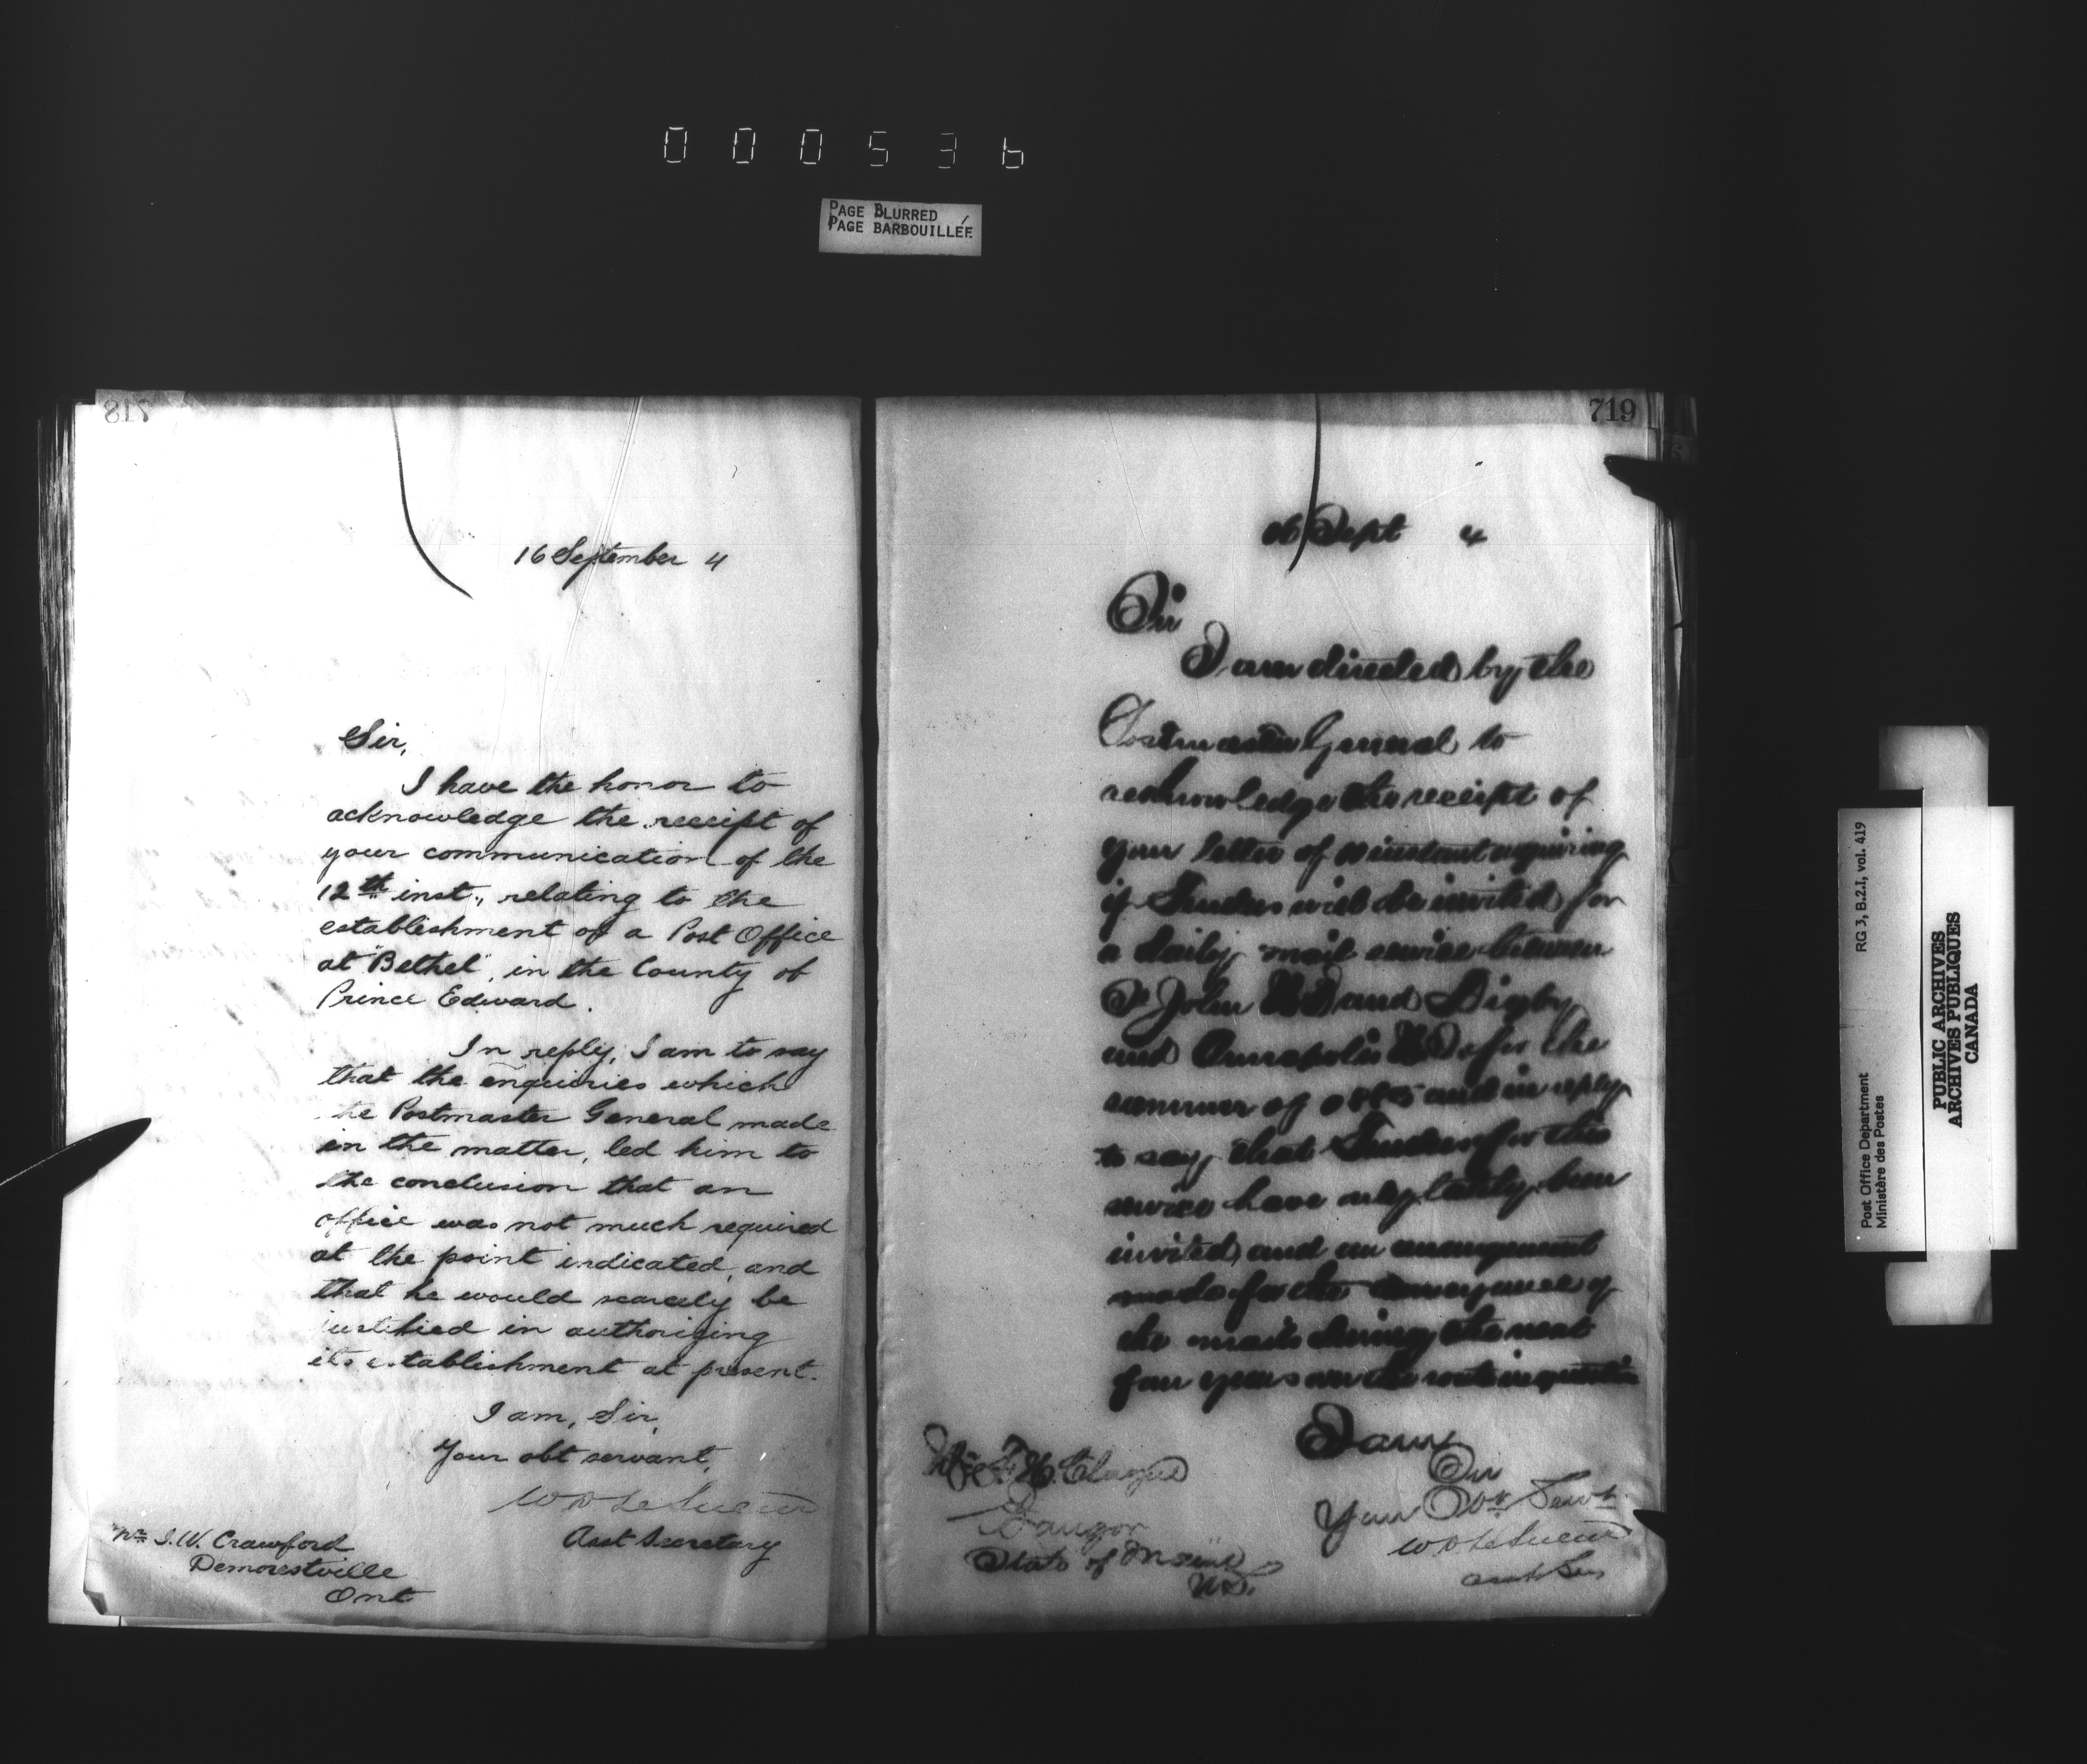 000536
PAGE BLURRED
PAGE BARBOUILLÉE
718
16 September 4
Sir,
I have the honor to
acknowledge the receipt of
your communication of the
12th inst., relating to the
establishment of a Post Office
at "Bethel", in the County of
Prince Edward.
In reply, I am to say
that the enquiries which
the Postmaster General made
in the matter, led him to
the conclusion that an
office was not much required
at the point indicated, and
that he would scarcely be
justified in authorizing
its establishment at present.
I am, Sir,
Your obt servant,
W D LeSueur
Asst Secretary
Mr J. W. Crawford
Demorestville
Ont
719
16 Sept 4
Sir
I am directed by the
Postmaster General to
acknowledge the receipt of
your letter of instant enquiring
if Tenders will be invited for
a daily mail service between
St John NB and Digby
and Annapolis NS for the
summer of 1885 and in reply
to say that Tenders for this
service have only lately been
invited, and an arrangement
made for the conveyance of
the mails during the next
four years on the route in question
I am
Sir
Your Obt Servt
W D LeSueur
asst Sec
Bangor
State of Maine
U.S.
Post Office Department
Ministère des Postes
RG 3, B.2.I, vol. 419
PUBLIC ARCHIVES
ARCHIVES PUBLIQUES
CANADA